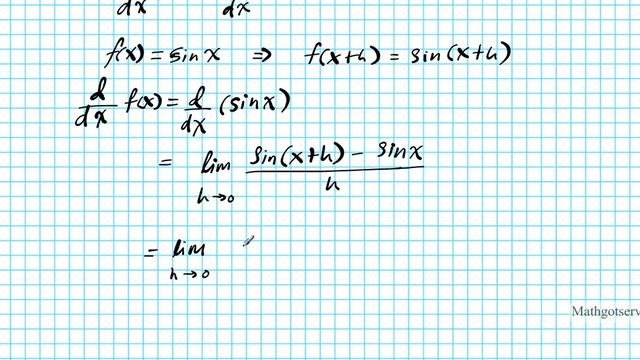 dx dx
f(x) = sinx ⇒ f(x+h) = sin(x+h)
d/dx f(x) = d/dx (sinx)
= lim h→0 sin(x+h) − sinx / h
= lim h→0
Mathgotserv